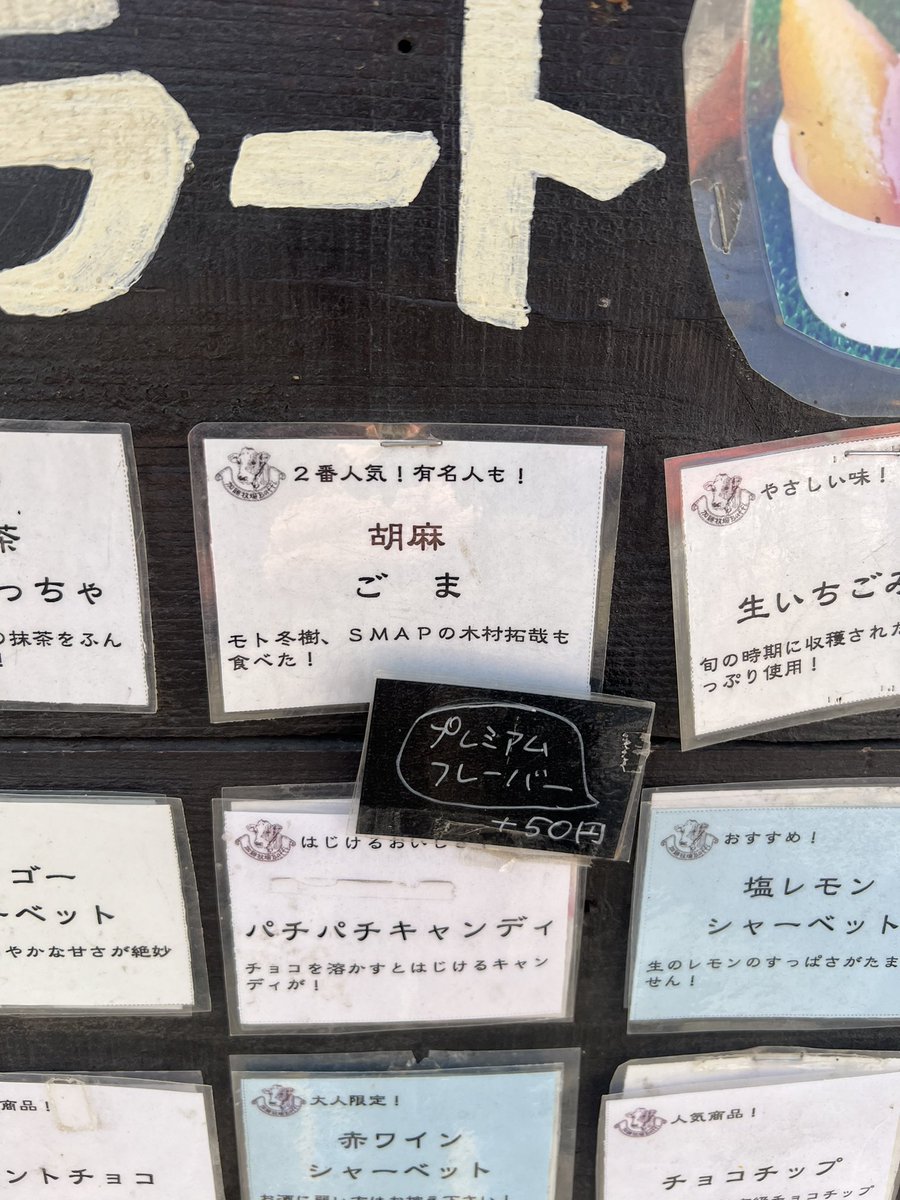 ラート
茶
っちゃ
の抹茶をふん
！
２番人気！有名人も！
胡麻
ごま
モト冬樹、ＳＭＡＰの木村拓哉も
食べた！
やさしい味！
生いちごみ
旬の時期に収穫された
っぷり使用！
プレミアム
フレーバー
＋50円
ゴー
ーベット
やかな甘さが絶妙
はじけるおいし
パチパチキャンディ
チョコを溶かすとはじけるキャン
ディが！
おすすめ！
塩レモン
シャーベット
生のレモンのすっぱさがたま
せん！
商品！
ントチョコ
大人限定！
赤ワイン
シャーベット
お酒に弱い方はお控え下さい！
人気商品！
チョコチップ
チョコチップ